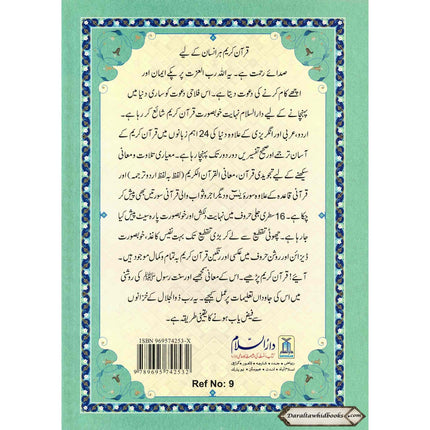 قرآن کریم ہر انسان کے لیے
صدائے رحمت ہے۔ یہ اللہ رب العزت پر پکے ایمان اور
اچھے کام کرنے کی دعوت دیتا ہے۔ اس فلاحی دعوت کو ساری دنیا میں
پہنچانے کے لیے دارالسلام نہایت خوبصورت قرآن کریم شائع کر رہا ہے۔
اردو، عربی اور انگریزی کے علاوہ دنیا کی 24 اہم زبانوں میں قرآن کریم کے
آسان ترجمے اور صحیح تفسیریں دور دور تک پہنچا رہا ہے۔ معیاری تلاوت و معانی
سیکھنے کے لیے تجویدی قرآن، معانی القرآن الکریم (لفظ بہ لفظ اردو ترجمہ) اور
قرآنی قاعدہ کے علاوہ سورۃ یٰسٓ و دیگر اجر و ثواب والی قرآنی سورتیں بھی پیش کر
چکا ہے۔ 16 سطری جلی حروف میں نہایت دلکش اور خوبصورت پارہ سیٹ پیش کیا
جا رہا ہے۔ چھوٹی تقطیع سے لے کر بڑی تقطیع تک بہت نفیس کاغذ، خوبصورت
ڈیزائن اور روشن حروف میں عکسی اور رنگین قرآن کریم بہ تمام و کمال موجود ہیں۔
آیئے! قرآن کریم پڑھیے۔ اس کے معانی سمجھیے اور سنت رسول ﷺ کی روشنی
میں اس کی جاوداں تعلیمات پر عمل کیجیے۔ یہ رب ذوالجلال کے خزانوں
سے فیض یاب ہونے کا یقینی طریقہ ہے۔
ISBN 969574253-X
9 789695 742532
دارالسلام
Ref No: 9
Daraltawhidbooks.com